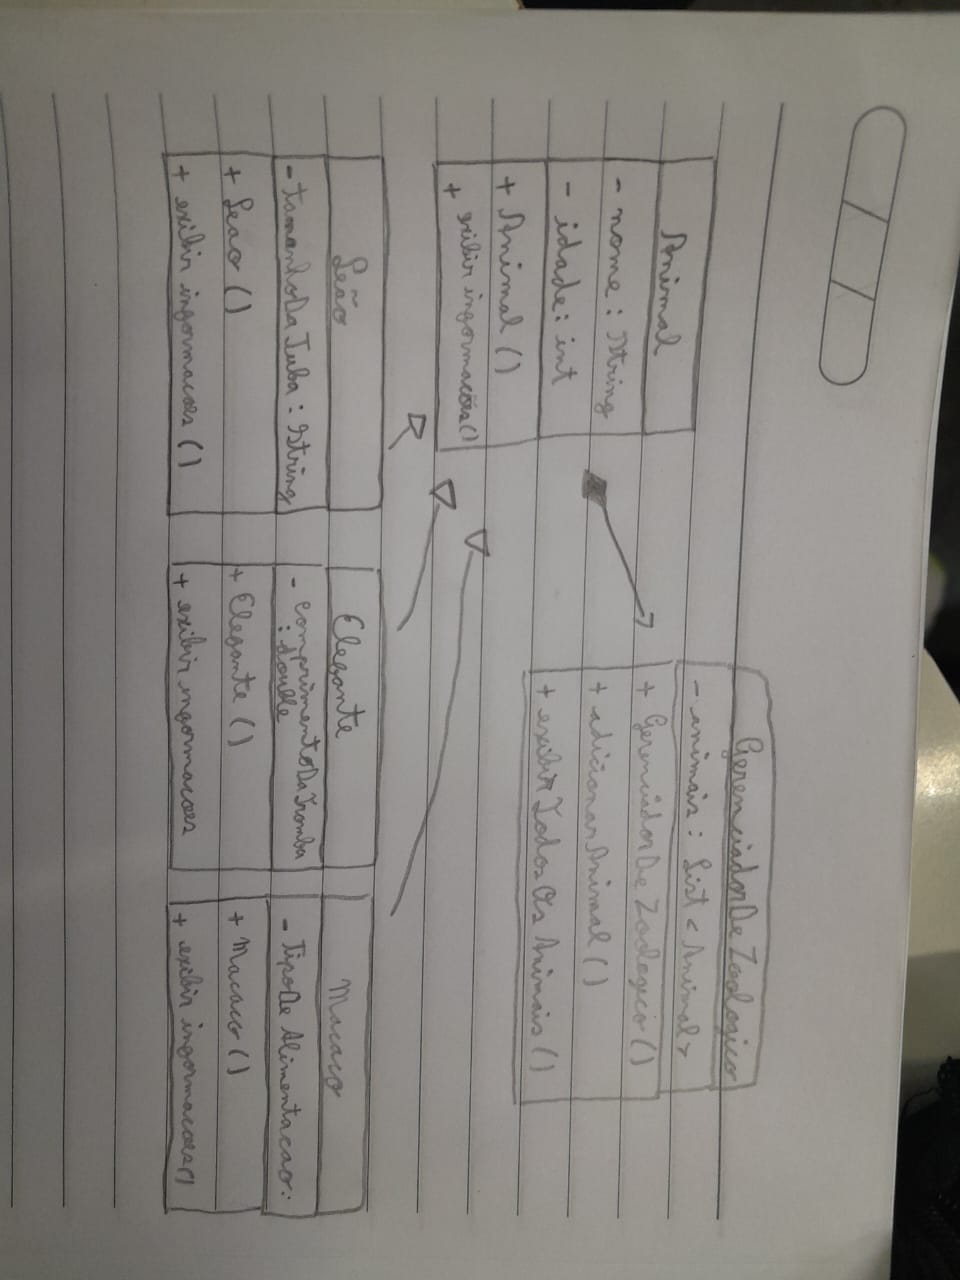 Animal
- nome : String
- idade : int
+ Animal ()
+ exibir informações ()
GerenciadorDeZoologico
- animais : List < Animal >
+ GerenciadorDeZoologico ()
+ adicionarAnimal ()
+ exibirTodosOsAnimais ()
Leão
- tamanhoDaJuba : String
+ Leao ()
+ exibir informacoes ()
Elefante
- comprimentoDaTromba
: double
+ Elefante ()
+ exibir informacoes
Macaco
- TipoDeAlimentacao :
+ Macaco ()
+ exibir informacoes ()